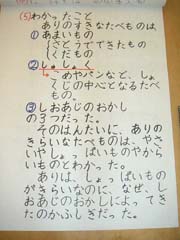 (5)わかったこと
ありのすきなたべものは
①あまいもの
(さとうでできたもの
くだもの
②しゅしょく
(こめやパンなど、しょ
くじの中心となるたべ
もの。
③しおあじのおかし
の3つだった。
そのはんたいに、ありの
きらいなたべものは、やさ
いやしょっぱいものやから
いものとわかった。
ありは、しょっぱいもの
がきらいなのに、なぜ、し
おあじのおかしによってき
たのかふしぎだった。